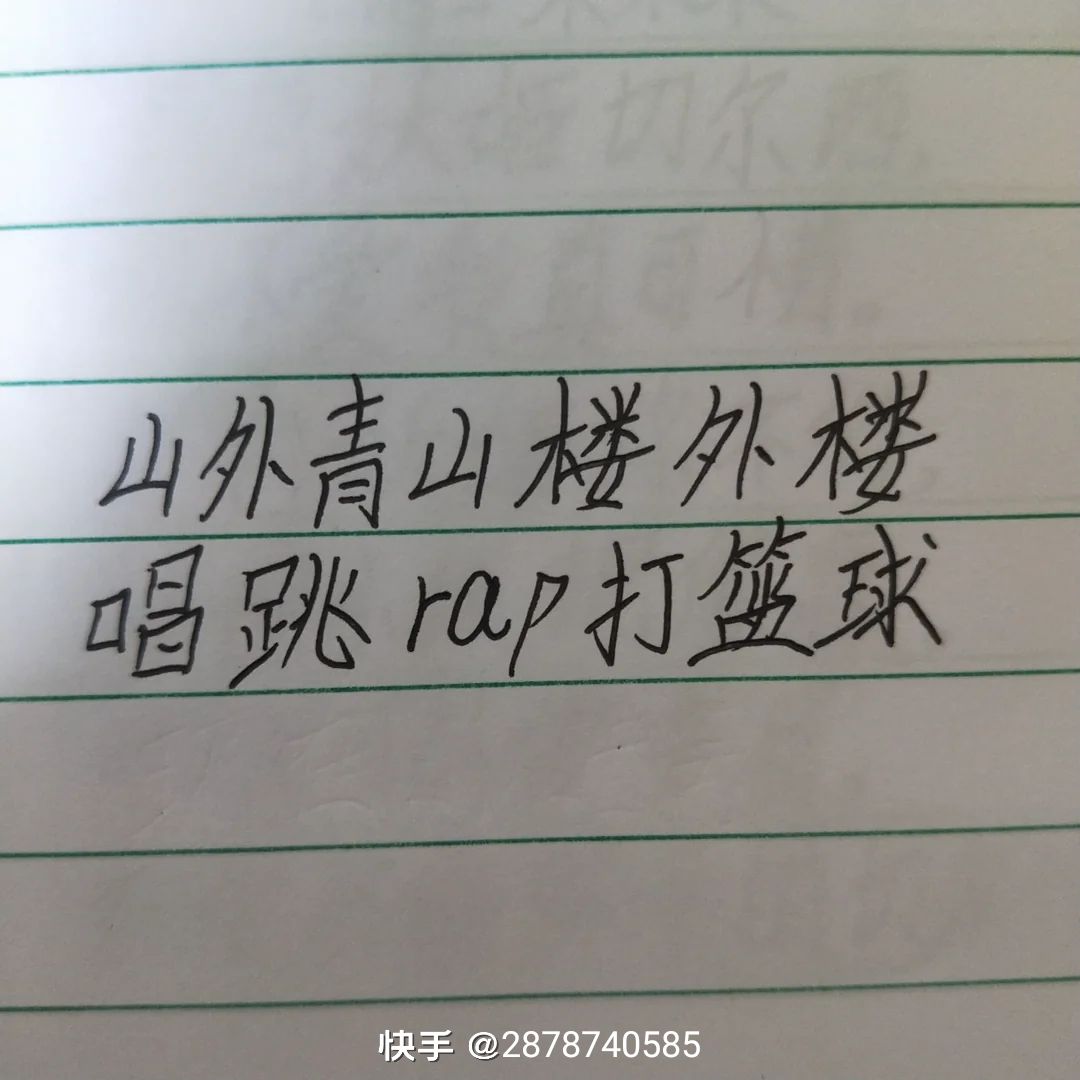 山外青山楼外楼
唱跳rap打篮球
快手 @2878740585